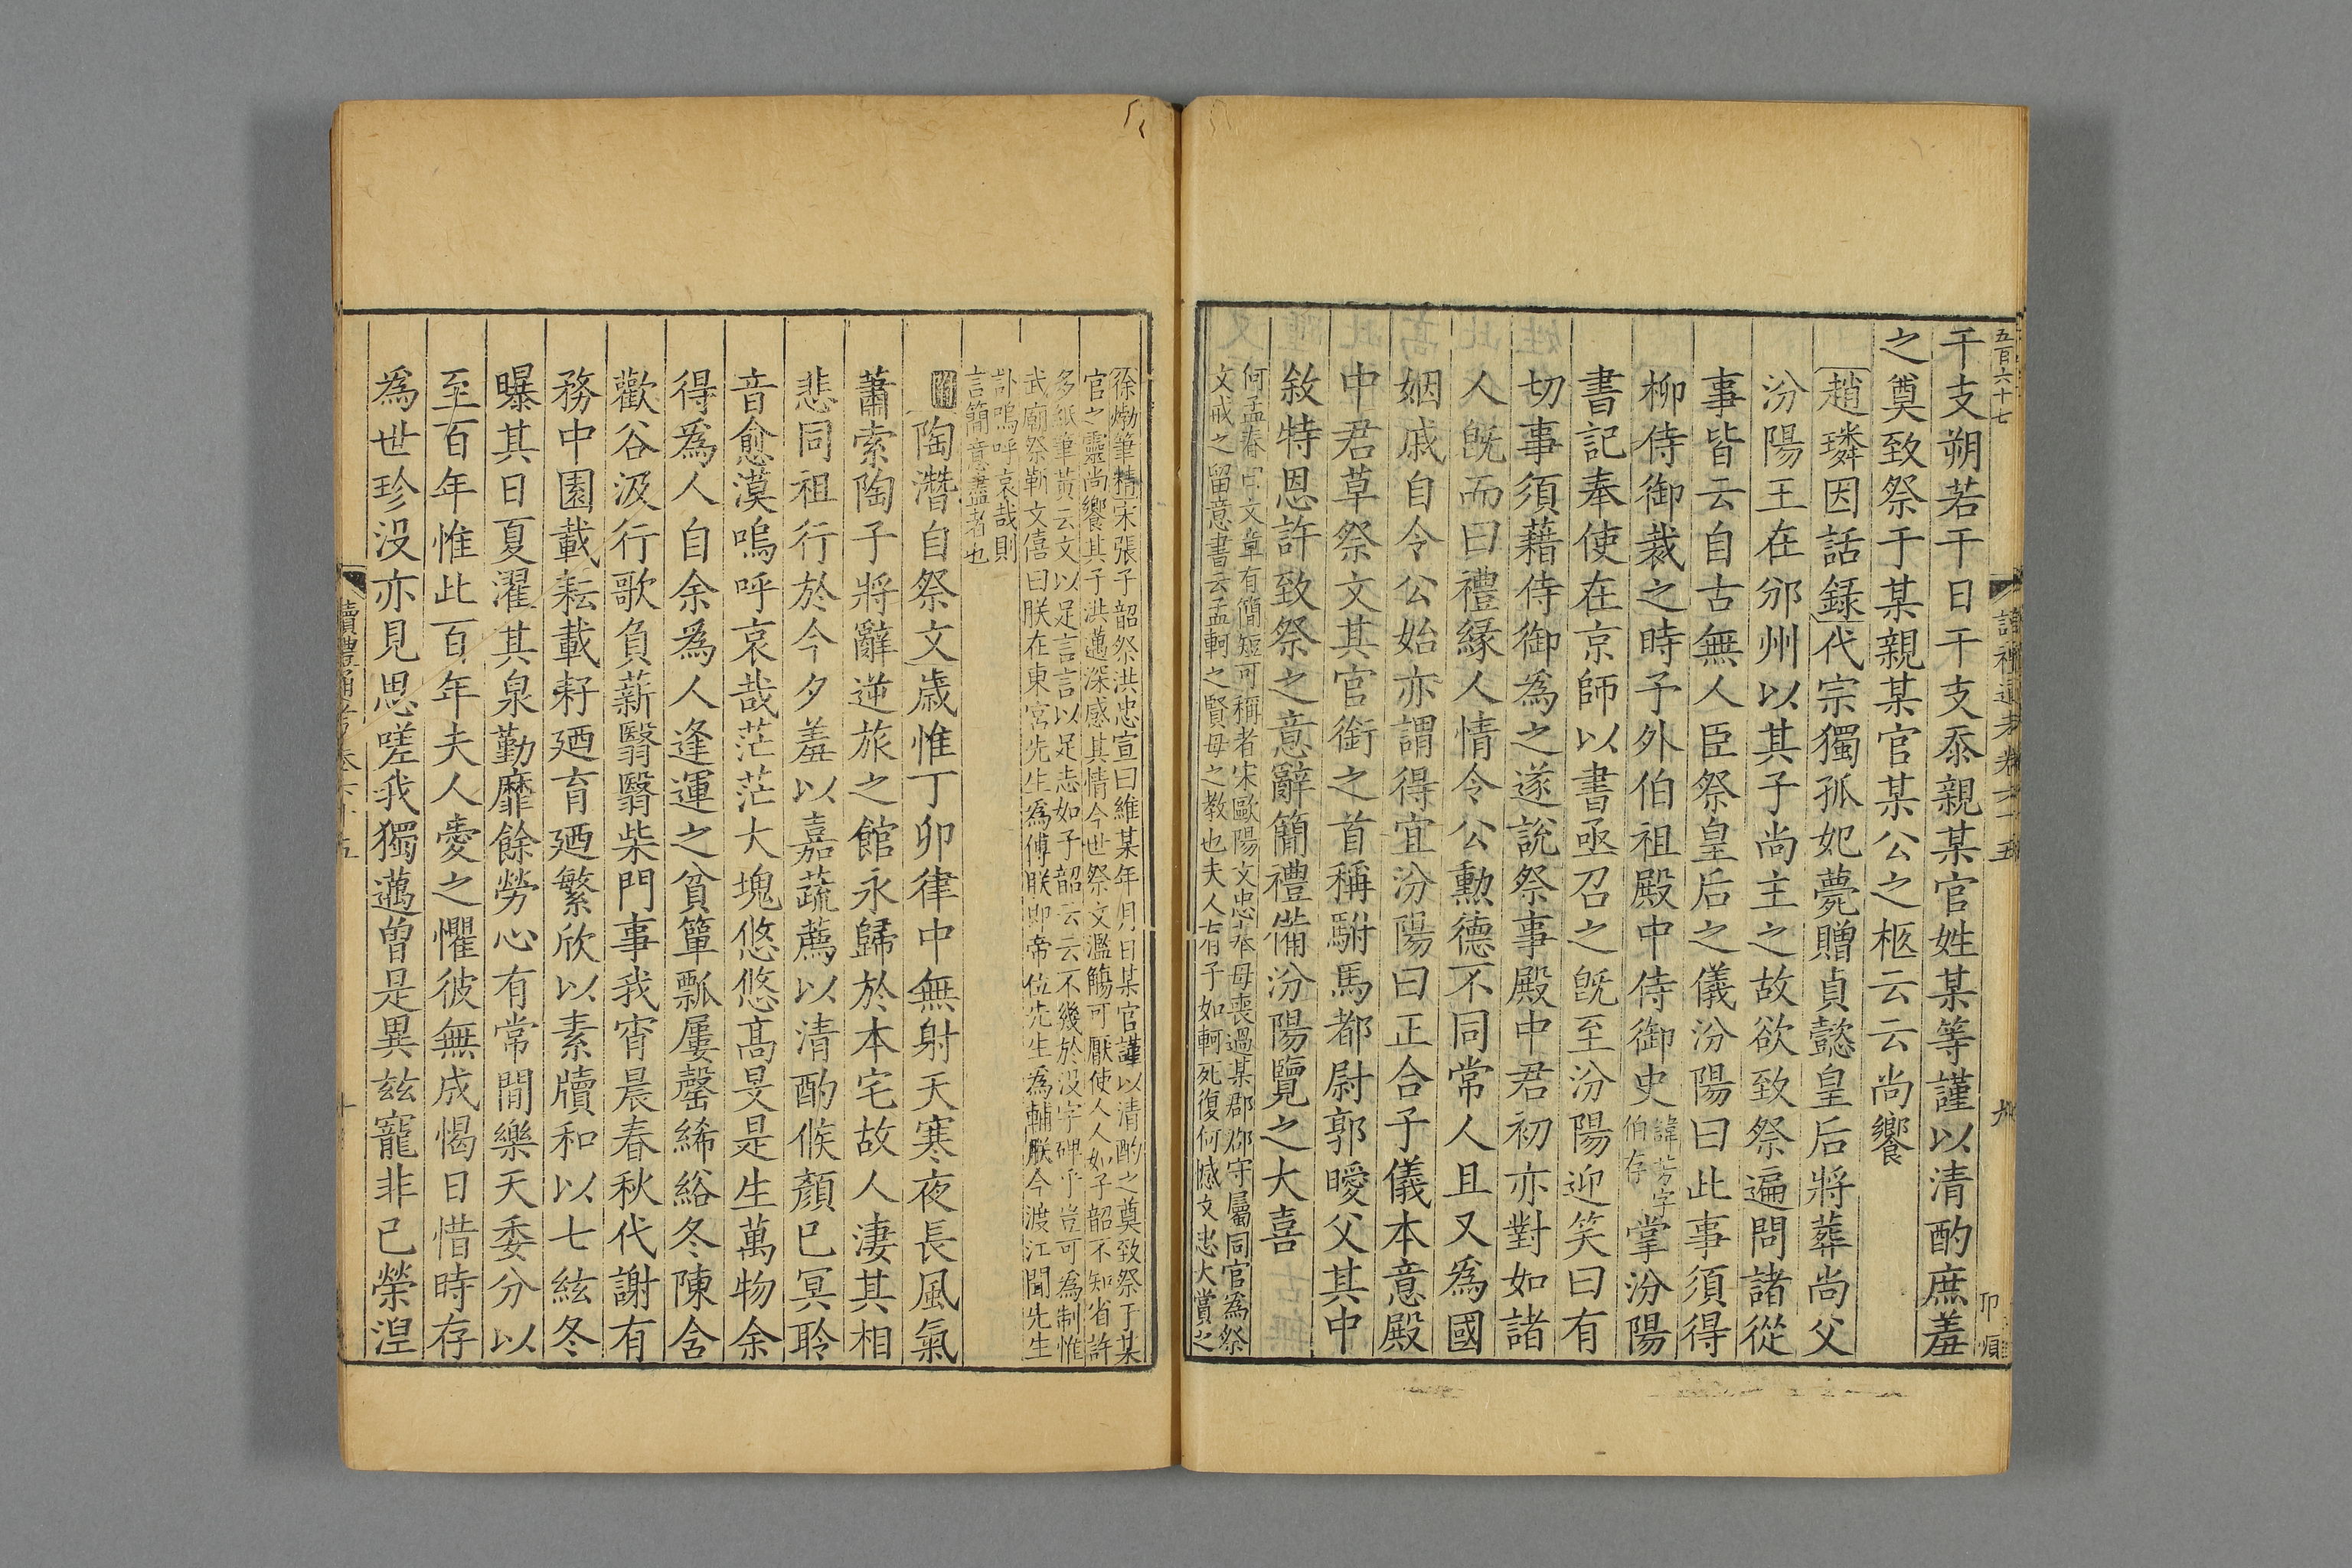 五百六十七
讀禮通考卷六十五
九
干支朔若干日干支忝親某官姓某等謹以清酌庶羞
之奠致祭于某親某官某公之柩云云尚饗
趙璘因話録代宗獨孤妃薨贈貞懿皇后將葬尚父
汾陽王在邠州以其子尚主之故欲致祭遍問諸從
事皆云自古無人臣祭皇后之儀汾陽曰此事須得
柳侍御裁之時予外伯祖殿中侍御史諱芳字伯存掌汾陽
書記奉使在京師以書亟召之旣至汾陽迎笑曰有
切事須藉侍御為之遂說祭事殿中君初亦對如諸
人旣而曰禮緣人情令公勳德不同常人且又爲國
姻戚自令公始亦謂得宜汾陽曰正合子儀本意殿
中君草祭文其官銜之首稱駙馬都尉郭曖父其中
敘特恩許致祭之意辭簡禮備汾陽覽之大喜
何孟春曰文章有簡短可稱者宋歐陽文忠奔母喪過某郡郡守屬同官為祭
文戒之留意書云孟軻之賢母之教也夫人有子如軻死復何憾文忠大賞之
徐𤊹筆精宋張子韶祭洪忠宣曰維某年月日某官謹以清酌之奠致祭于某
官之靈尚饗其子洪邁深感其情今世祭文濫觴可厭使人人如子韶不知省許
多紙筆黃云文以足言言以足志如子韶云云不幾於没字碑乎豈可為制惟
武廟祭靳文僖曰朕在東宮先生爲傅朕即帝位先生為輔朕今渡江聞先生
訃嗚呼哀哉則
言簡意盡者也
陶潛自祭文歳惟丁卯律中無射天寒夜長風氣
蕭索陶子將辭逆旅之館永歸於本宅故人淒其相
悲同祖行於今夕羞以嘉蔬薦以清酌候顏已冥聆
音愈漠嗚呼哀哉茫茫大塊悠悠髙旻是生萬物余
得爲人自余爲人逢運之貧簞瓢屢罄絺綌冬陳含
歡谷汲行歌負薪翳翳柴門事我宵晨春秋代謝有
務中園載耘載耔廼育廼繁欣以素牘和以七絃冬
曝其日夏濯其泉勤靡餘勞心有常閒樂天委分以
至百年惟此百年夫人愛之懼彼無成愒日惜時存
為世珍没亦見思嗟我獨邁曾是異兹寵非已榮涅
讀禮通考卷六十五
十